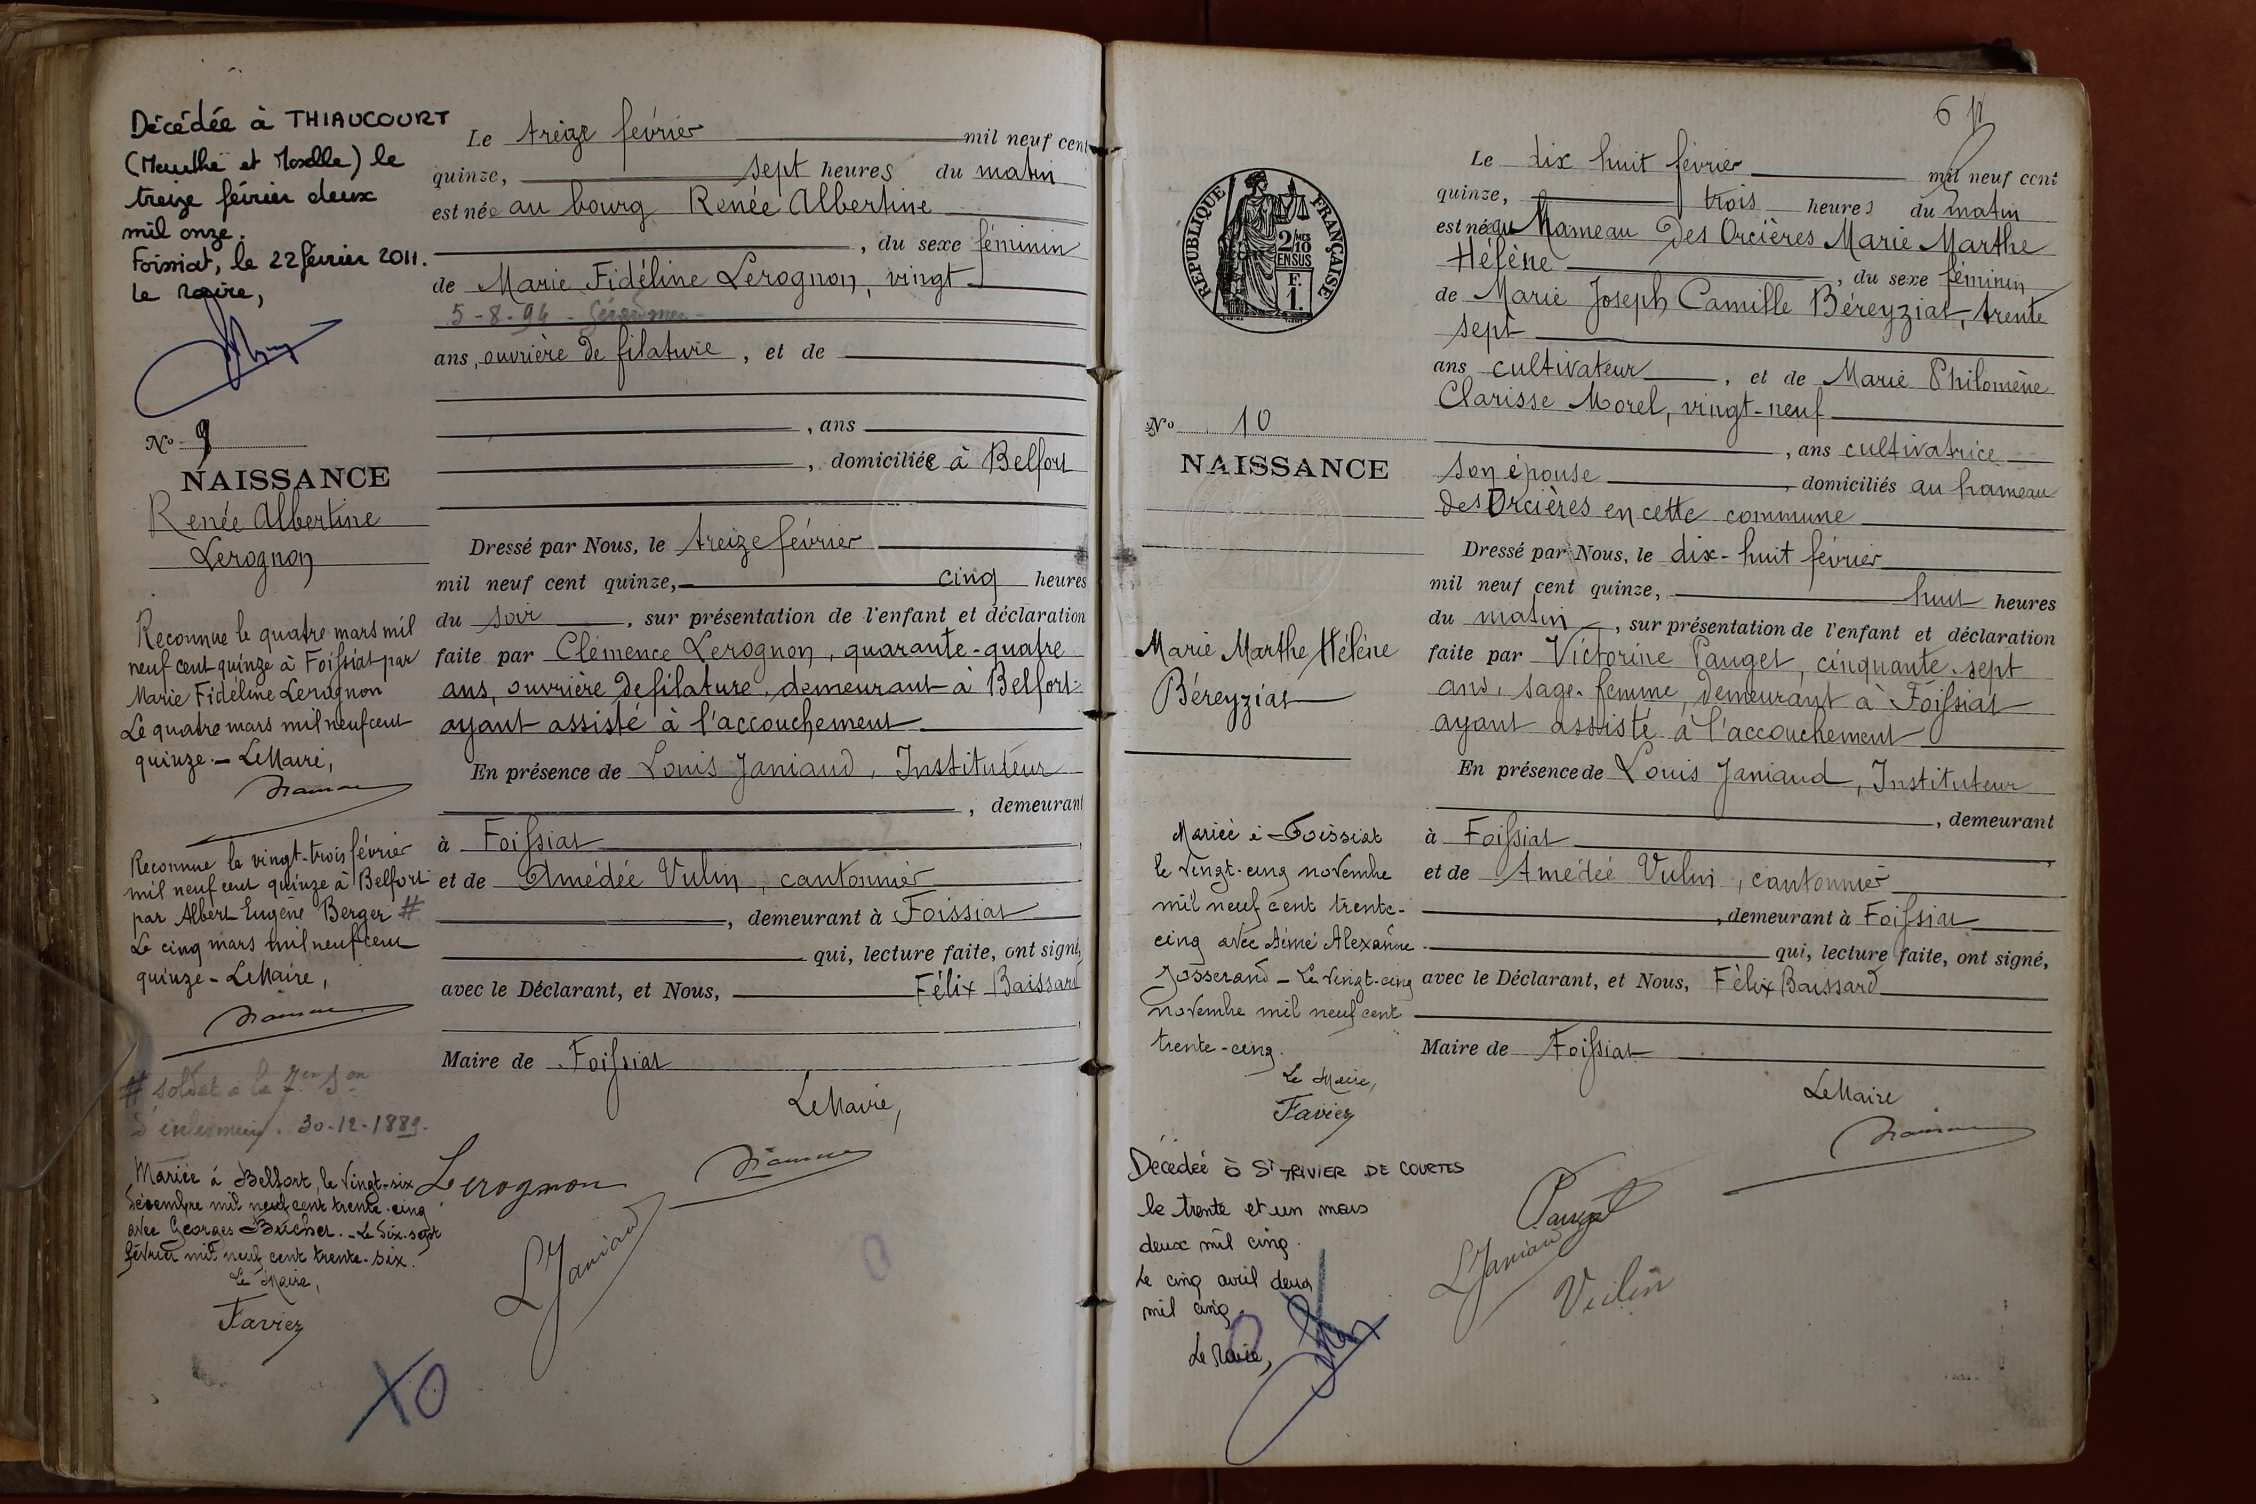 Décédée à THIAUCOURT
(Meurthe et Moselle) le
treize février deux
mil onze.
Foissiat, le 22 février 2011.
Le Maire,
No 9
NAISSANCE
Renée Albertine
Lerognon
Reconnue le quatre mars mil
neuf cent quinze à Foissiat par
Marie Fidéline Lerognon
Le quatre mars mil neuf cent
quinze. - Le Maire,
Reconnue le vingt-trois février
mil neuf cent quinze à Belfort
par Albert Eugène Berger #
Le cinq mars mil neuf cent
quinze - Le Maire,
# soldat à la 7en Son
d'infirmiers. 30-12-1889.
Mariée à Belfort, le vingt-six
décembre mil neuf cent trente-cinq
avec Georges Bucher. - Le dix-sept
février mil neuf cent trente-six.
Le Maire,
Favier
Le treize février mil neuf cent
quinze, sept heures du matin
est née au bourg Renée Albertine
, du sexe féminin
de Marie Fidéline Lerognon, vingt
5-8-94 - Gérardmer -
ans, ouvrière de filature, et de
, ans
, domiciliée à Belfort
Dressé par Nous, le treize février
mil neuf cent quinze, cinq heures
du soir, sur présentation de l'enfant et déclaration
faite par Clémence Lerognon, quarante-quatre
ans, ouvrière de filature, demeurant à Belfort
ayant assisté à l'accouchement
En présence de Louis Janiaud, Instituteur
, demeurant
à Foissiat
et de Amédée Vulin, cantonnier
, demeurant à Foissiat
qui, lecture faite, ont signé,
avec le Déclarant, et Nous, Félix Baissard
Maire de Foissiat
Le Maire,
Lerognon
LJaniaud
6
RÉPUBLIQUE FRANÇAISE
2/10 MES
EN SUS
F.
1.
No 10
NAISSANCE
Marie Marthe Hélène
Béreyziat
Mariée à Foissiat
le vingt-cinq novembre
mil neuf cent trente-
cinq avec Aimé Alexandre
Josserand - Le vingt-cinq
novembre mil neuf cent
trente-cinq.
Le Maire,
Favier
Décédée à St TRIVIER DE COURTES
le trente et un mars
deux mil cinq.
Le cinq avril deux
mil cinq.
Le Maire,
Le dix huit février mil neuf cent
quinze, trois heures du matin
est née au hameau des Orcières Marie Marthe
Hélène, du sexe féminin
de Marie Joseph Camille Béreyziat, trente
sept
ans cultivateur, et de Marie Philomène
Clarisse Morel, vingt-neuf
, ans cultivatrice
son épouse, domiciliés au hameau
des Orcières en cette commune
Dressé par Nous, le dix-huit février
mil neuf cent quinze, huit heures
du matin, sur présentation de l'enfant et déclaration
faite par Victorine Pauget, cinquante-sept
ans, sage-femme, demeurant à Foissiat
ayant assisté à l'accouchement
En présence de Louis Janiaud, Instituteur
, demeurant
à Foissiat
et de Amédée Vulin, cantonnier
, demeurant à Foissiat
qui, lecture faite, ont signé,
avec le Déclarant, et Nous, Félix Baissard
Maire de Foissiat
Le Maire
Pauget
LJaniaud
Vulin